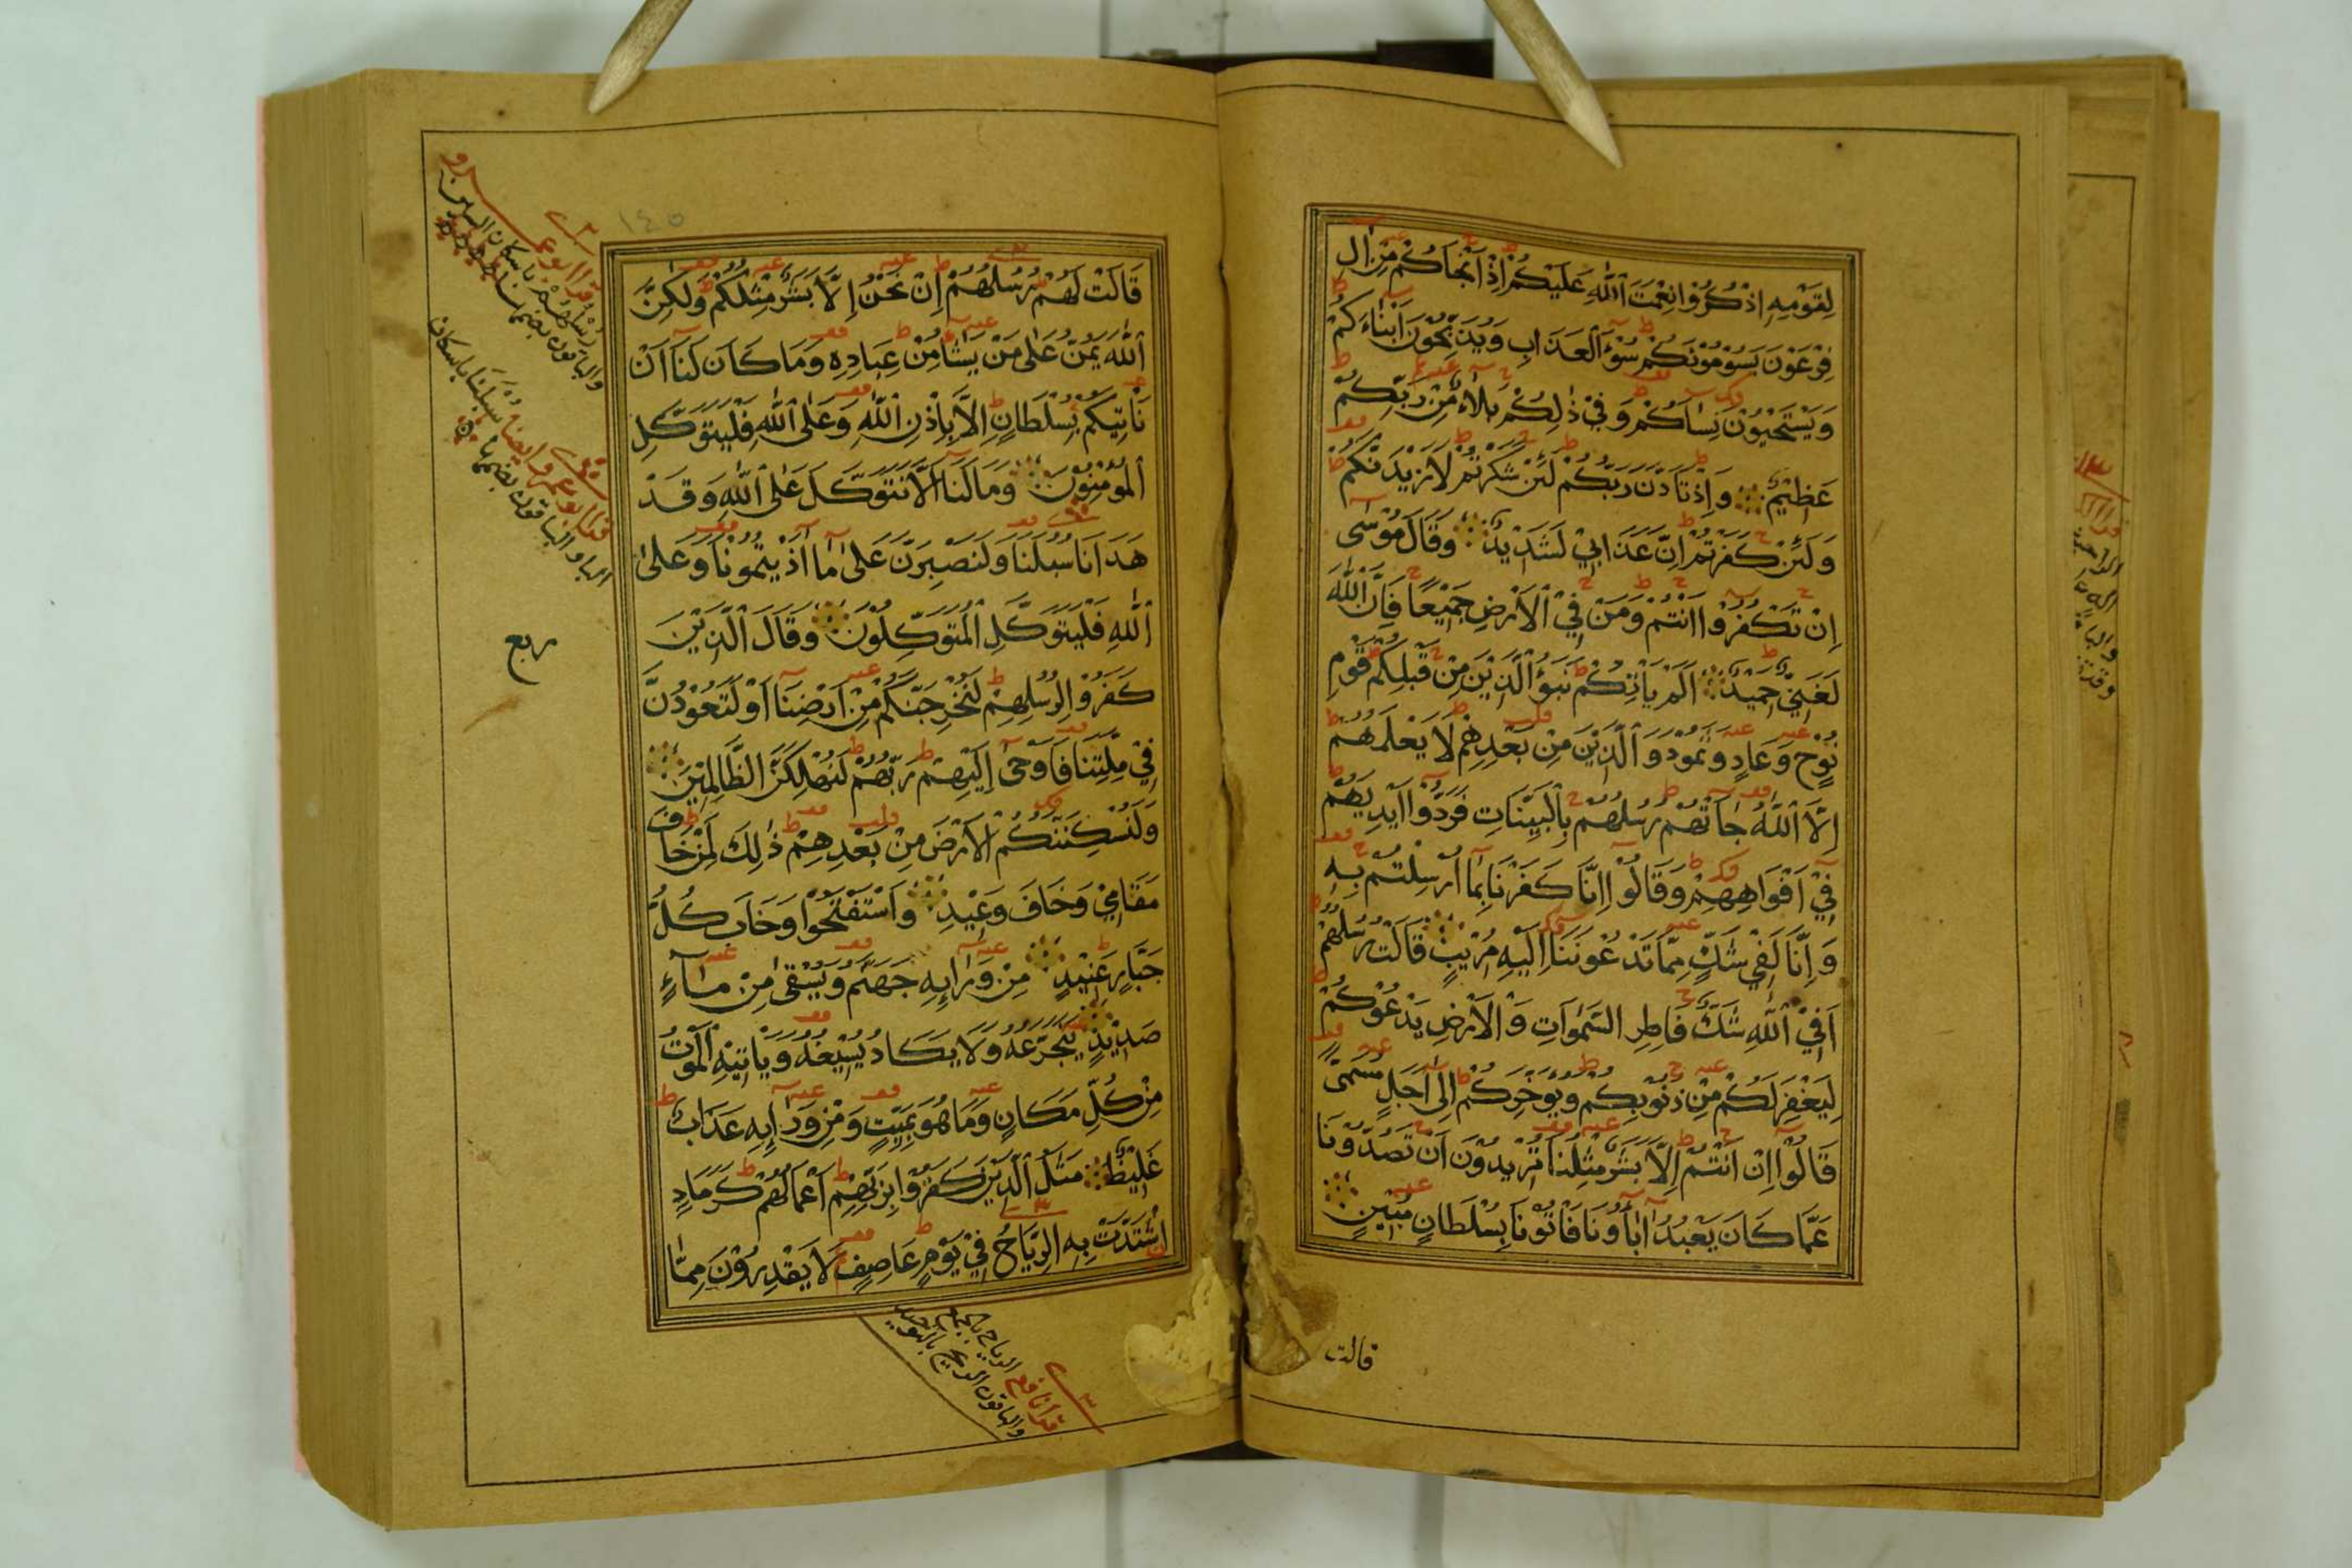 لِقَوْمِهِ اذْكُرُوْا نِعْمَتَ اللّٰهِ عَلَيْكُمْ اِذْ اَنْجٰاكُمْ مِنْ اٰلِ
فِرْعَوْنَ يَسُوْمُوْنَكُمْ سُوْۤءَ الْعَذَابِ وَيُذَبِّحُوْنَ اَبْنَاءَكُمْ
وَيَسْتَحْيُوْنَ نِسَاۤءَكُمْ وَفِيْ ذٰلِكُمْ بَلَاۤءٌ مِّنْ رَبِّكُمْ
عَظِيْمٌ وَاِذْ تَاَذَّنَ رَبُّكُمْ لَئِنْ شَكَرْتُمْ لَاَزِيْدَنَّكُمْ
وَلَئِنْ كَفَرْتُمْ اِنَّ عَذَابِيْ لَشَدِيْدٌ وَقَالَ مُوْسٰى
اِنْ تَكْفُرُوْا اَنْتُمْ وَمَنْ فِي الْاَرْضِ جَمِيْعًا فَاِنَّ اللّٰهَ
لَغَنِيٌّ حَمِيْدٌ اَلَمْ يَاْتِكُمْ نَبَؤُا الَّذِيْنَ مِنْ قَبْلِكُمْ قَوْمِ
نُوْحٍ وَعَادٍ وَثَمُوْدَ وَالَّذِيْنَ مِنْ بَعْدِهِمْ لَا يَعْلَمُهُمْ
اِلَّا اللّٰهُ جَاۤءَتْهُمْ رُسُلُهُمْ بِالْبَيِّنَاتِ فَرَدُّوْا اَيْدِيَهُمْ
فِيْ اَفْوَاهِهِمْ وَقَالُوْا اِنَّا كَفَرْنَا بِمَا اُرْسِلْتُمْ بِهِ
وَاِنَّا لَفِيْ شَكٍّ مِمَّا تَدْعُوْنَنَا اِلَيْهِ مُرِيْبٍ قَالَتْ رُسُلُهُمْ
اَفِي اللّٰهِ شَكٌّ فَاطِرِ السَّمٰوَاتِ وَالْاَرْضِ يَدْعُوْكُمْ
لِيَغْفِرَ لَكُمْ مِنْ ذُنُوْبِكُمْ وَيُؤَخِّرَكُمْ اِلٰى اَجَلٍ مُسَمًّى
قَالُوْا اِنْ اَنْتُمْ اِلَّا بَشَرٌ مِثْلُنَا تُرِيْدُوْنَ اَنْ تَصُدُّوْنَا
عَمَّا كَانَ يَعْبُدُ اٰبَاۤؤُنَا فَاْتُوْنَا بِسُلْطَانٍ مُبِيْنٍ
قالت
١٤٥
قَالَتْ لَهُمْ رُسُلُهُمْ اِنْ نَحْنُ اِلَّا بَشَرٌ مِثْلُكُمْ وَلٰكِنَّ
اللّٰهَ يَمُنُّ عَلٰى مَنْ يَشَاۤءُ مِنْ عِبَادِهِ وَمَا كَانَ لَنَا اَنْ
نَاْتِيَكُمْ بِسُلْطَانٍ اِلَّا بِاِذْنِ اللّٰهِ وَعَلَى اللّٰهِ فَلْيَتَوَكَّلِ
الْمُؤْمِنُوْنَ وَمَا لَنَا اَلَّا نَتَوَكَّلَ عَلَى اللّٰهِ وَقَدْ
هَدَانَا سُبُلَنَا وَلَنَصْبِرَنَّ عَلٰى مَا اٰذَيْتُمُوْنَا وَعَلَى
اللّٰهِ فَلْيَتَوَكَّلِ الْمُتَوَكِّلُوْنَ وَقَالَ الَّذِيْنَ
كَفَرُوْا لِرُسُلِهِمْ لَنُخْرِجَنَّكُمْ مِنْ اَرْضِنَا اَوْ لَتَعُوْدُنَّ
فِيْ مِلَّتِنَا فَاَوْحٰى اِلَيْهِمْ رَبُّهُمْ لَنُهْلِكَنَّ الظَّالِمِيْنَ
وَلَنُسْكِنَنَّكُمُ الْاَرْضَ مِنْ بَعْدِهِمْ ذٰلِكَ لِمَنْ خَافَ
مَقَامِيْ وَخَافَ وَعِيْدِ وَاسْتَفْتَحُوْا وَخَابَ كُلُّ
جَبَّارٍ عَنِيْدٍ مِنْ وَرَاۤئِهِ جَهَنَّمُ وَيُسْقٰى مِنْ مَاۤءٍ
صَدِيْدٍ يَتَجَرَّعُهُ وَلَا يَكَادُ يُسِيْغُهُ وَيَاْتِيْهِ الْمَوْتُ
مِنْ كُلِّ مَكَانٍ وَمَا هُوَ بِمَيِّتٍ وَمِنْ وَرَاۤئِهِ عَذَابٌ
غَلِيْظٌ مَثَلُ الَّذِيْنَ كَفَرُوْا بِرَبِّهِمْ اَعْمَالُهُمْ كَرَمَادِ
اشْتَدَّتْ بِهِ الرِّيَاحُ فِيْ يَوْمٍ عَاصِفٍ لَا يَقْدِرُوْنَ مِمَّا
قرا ابو عمرو
رسلهم باسكان السين
والباقون بضمها
قرا ابو عمرو ايضا سبلنا باسكان
الباء والباقون بضمها
ربع
قرا نافع الرياح بالجمع
والباقون الريح بالتوحيد